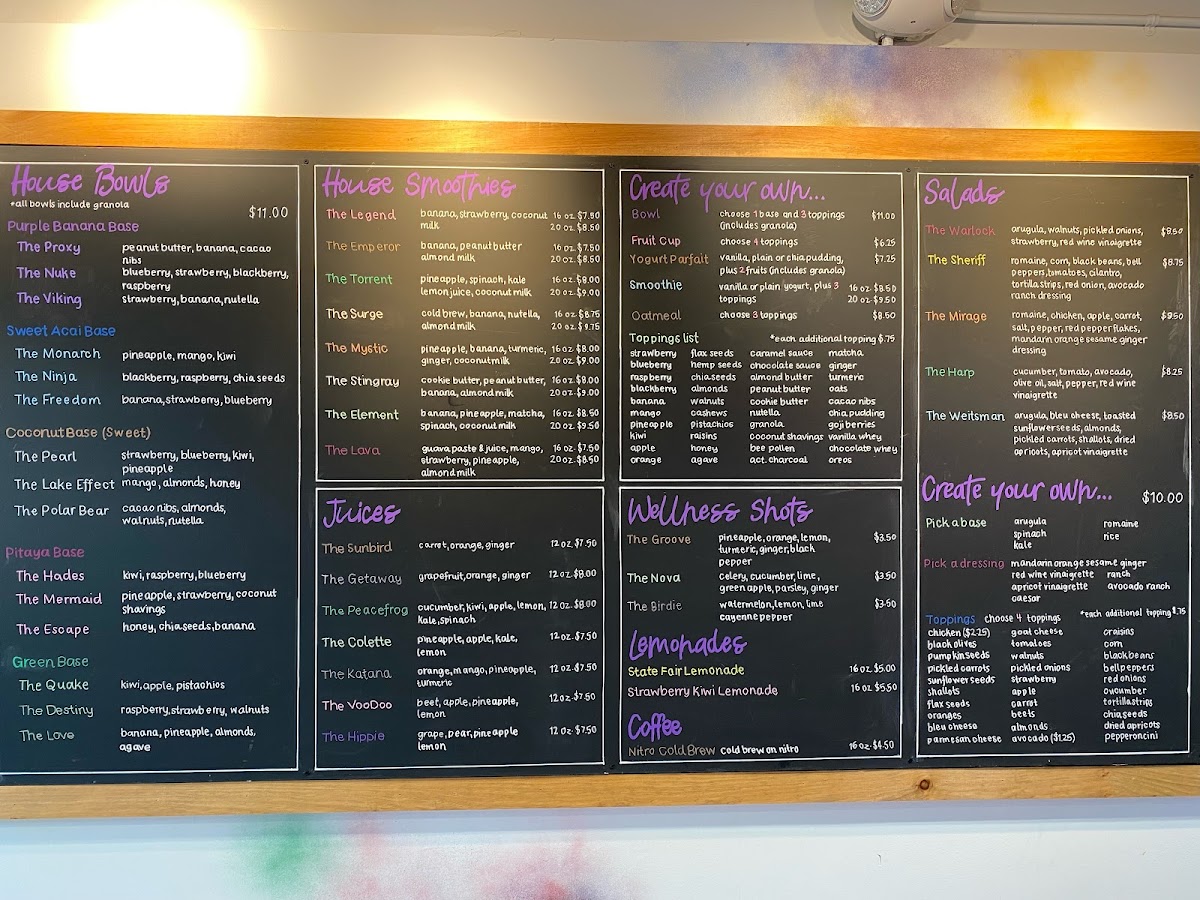 House Bowls
*all bowls include granola
$11.00
Purple Banana Base
The Proxy peanut butter, banana, cacao
nibs
The Nuke blueberry, strawberry, blackberry,
raspberry
The Viking strawberry, banana, nutella
Sweet Acai Base
The Monarch pineapple, mango, kiwi
The Ninja blackberry, raspberry, chia seeds
The Freedom banana, strawberry, blueberry
Coconut Base (Sweet)
The Pearl strawberry, blueberry, kiwi,
pineapple
The Lake Effect mango, almonds, honey
The Polar Bear cacao nibs, almonds,
walnuts, nutella
Pitaya Base
The Hades kiwi, raspberry, blueberry
The Mermaid pineapple, strawberry, coconut
shavings
The Escape honey, chia seeds, banana
Green Base
The Quake kiwi, apple, pistachios
The Destiny raspberry, strawberry, walnuts
The Love banana, pineapple, almonds,
agave
House Smoothies
The Legend banana, strawberry, coconut 16 oz $7.50
milk 20 oz $8.50
The Emperor banana, peanut butter 16 oz $7.50
almond milk 20 oz $8.50
The Torrent pineapple, spinach, kale 16 oz $8.00
lemon juice, coconut milk 20 oz $9.00
The Surge cold brew, banana, nutella, 16 oz $8.75
almond milk 20 oz $9.75
The Mystic pineapple, banana, turmeric, 16 oz $8.00
ginger, coconut milk 20 oz $9.00
The Stingray cookie butter, peanut butter, 16 oz $8.00
banana, almond milk 20 oz $9.00
The Element banana, pineapple, matcha, 16 oz $8.50
spinach, coconut milk 20 oz $9.50
The Lava guava paste & juice, mango, 16 oz $7.50
strawberry, pineapple, 20 oz $8.50
almond milk
Juices
The Sunbird carrot, orange, ginger 12 oz $7.50
The Getaway grapefruit, orange, ginger 12 oz $8.00
The Peacefrog cucumber, kiwi, apple, lemon, 12 oz $8.00
kale, spinach
The Colette pineapple, apple, kale, 12 oz $7.50
lemon
The Katana orange, mango, pineapple, 12 oz $7.50
turmeric
The VooDoo beet, apple, pineapple, 12 oz $7.50
lemon
The Hippie grape, pear, pineapple 12 oz $7.50
lemon
Create your own...
Bowl choose 1 base and 3 toppings $11.00
(includes granola)
Fruit Cup choose 4 toppings $6.25
Yogurt Parfait vanilla, plain or chia pudding, $7.25
plus 2 fruits (includes granola)
Smoothie vanilla or plain yogurt, plus 3 16 oz $8.50
toppings 20 oz $9.50
Oatmeal choose 3 toppings $8.50
Toppings list *each additional topping $.75
strawberry flax seeds caramel sauce matcha
blueberry hemp seeds chocolate sauce ginger
raspberry chia seeds almond butter turmeric
blackberry almonds peanut butter oats
banana walnuts cookie butter cacao nibs
mango cashews nutella chia pudding
pineapple pistachios granola goji berries
kiwi raisins coconut shavings vanilla whey
apple honey bee pollen chocolate whey
orange agave act. charcoal oreos
Wellness Shots
The Groove pineapple, orange, lemon, $3.50
turmeric, ginger, black
pepper
The Nova celery, cucumber, lime, $3.50
green apple, parsley, ginger
The Birdie watermelon, lemon, lime $3.50
cayenne pepper
Lemonades
State Fair Lemonade 16 oz $5.00
Strawberry Kiwi Lemonade 16 oz $5.50
Coffee
Nitro Cold Brew cold brew on nitro 16 oz $4.50
Salads
The Warlock arugula, walnuts, pickled onions, $8.50
strawberry, red wine vinaigrette
The Sheriff romaine, corn, black beans, bell $8.75
peppers, tomatoes, cilantro,
tortilla strips, red onion, avocado
ranch dressing
The Mirage romaine, chicken, apple, carrot, $9.50
salt, pepper, red pepper flakes,
mandarin orange sesame ginger
dressing
The Harp cucumber, tomato, avocado, $8.25
olive oil, salt, pepper, red wine
vinaigrette
The Weitsman arugula, bleu cheese, toasted $8.50
sunflower seeds, almonds,
pickled carrots, shallots, dried
apricots, apricot vinaigrette
Create your own... $10.00
Pick a base arugula romaine
spinach rice
kale
Pick a dressing mandarin orange sesame ginger
red wine vinaigrette ranch
apricot vinaigrette avocado ranch
caesar
Toppings choose 4 toppings *each additional topping $.75
chicken ($2.25) goat cheese craisins
black olives tomatoes corn
pumpkin seeds walnuts black beans
pickled carrots pickled onions bell peppers
sunflower seeds strawberry red onions
shallots apple cucumber
flax seeds carrot tortilla strips
oranges beets chia seeds
bleu cheese almonds dried apricots
parmesan cheese avocado ($1.25) pepperoncini